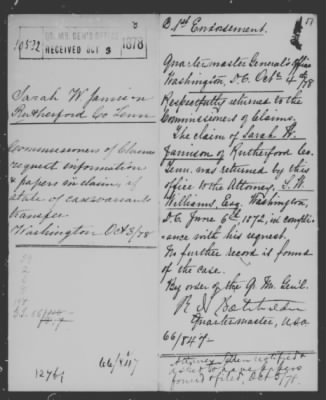 QR. MR. GEN'S OFFICE
10532 RECEIVED OCT 3 1878
Sarah W Jamison
Rutherford Co Tenn
Commissioners of Claims
request information
& papers in claim, &
state of case
transfer
Washington Oct 3/78
66/847
12761
51
B. 1st Endorsement.
Quartermaster General's Office
Washington, D.C. Octo. 4 d/78
Respectfully returned to the
Commissioners of Claims.
The claim of Sarah W.
Jamison of Rutherford Co.
Tenn. was returned by this
office to the Attorney,
Williams, Esq. Washington,
D.C. June 6th 1872, in compli-
ance with his request.
No further record is found
of the case.
By order of the Q. M. Genl.
Quartermaster, U.S.A.
66/847-
Attorney notified &
asked to have papers
found & filed, Oct 5/78.